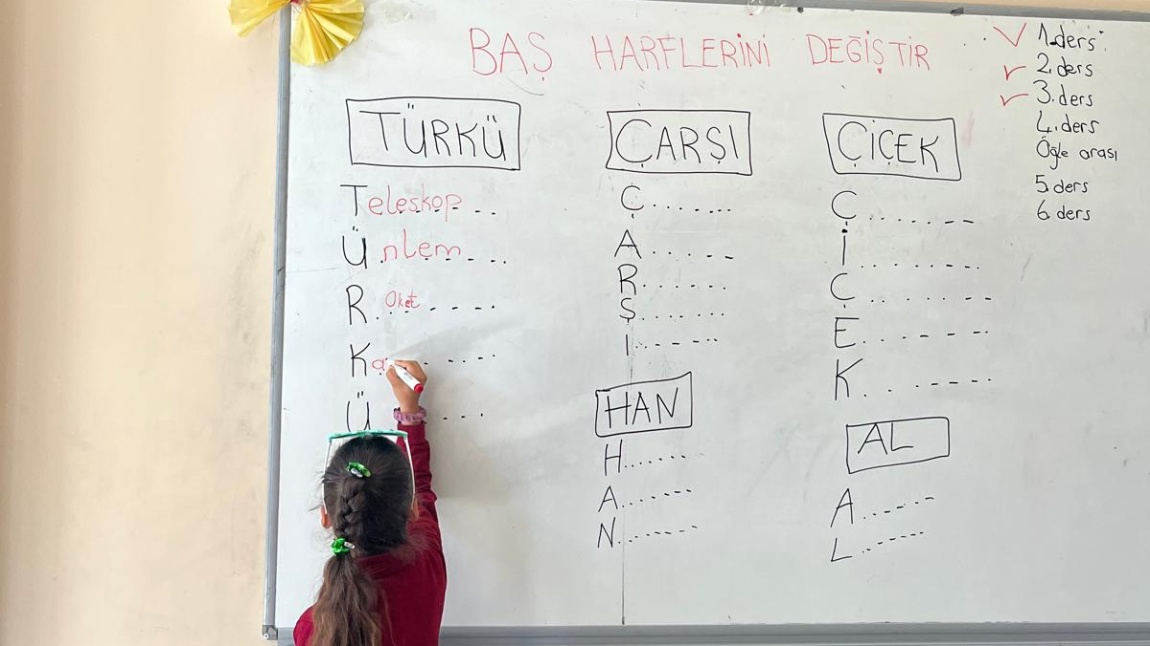 BAŞ HARFLERİNİ DEĞİŞTİR
1.ders
2.ders
3.ders
4.ders
Öğle arası
5.ders
6.ders
TÜRKÜ
Teleskop
Ünlem
Roket
Ka
Ü
ÇARŞI
Ç
A
R
Ş
I
HAN
H
A
N
ÇİÇEK
Ç
İ
Ç
E
K
AL
A
L